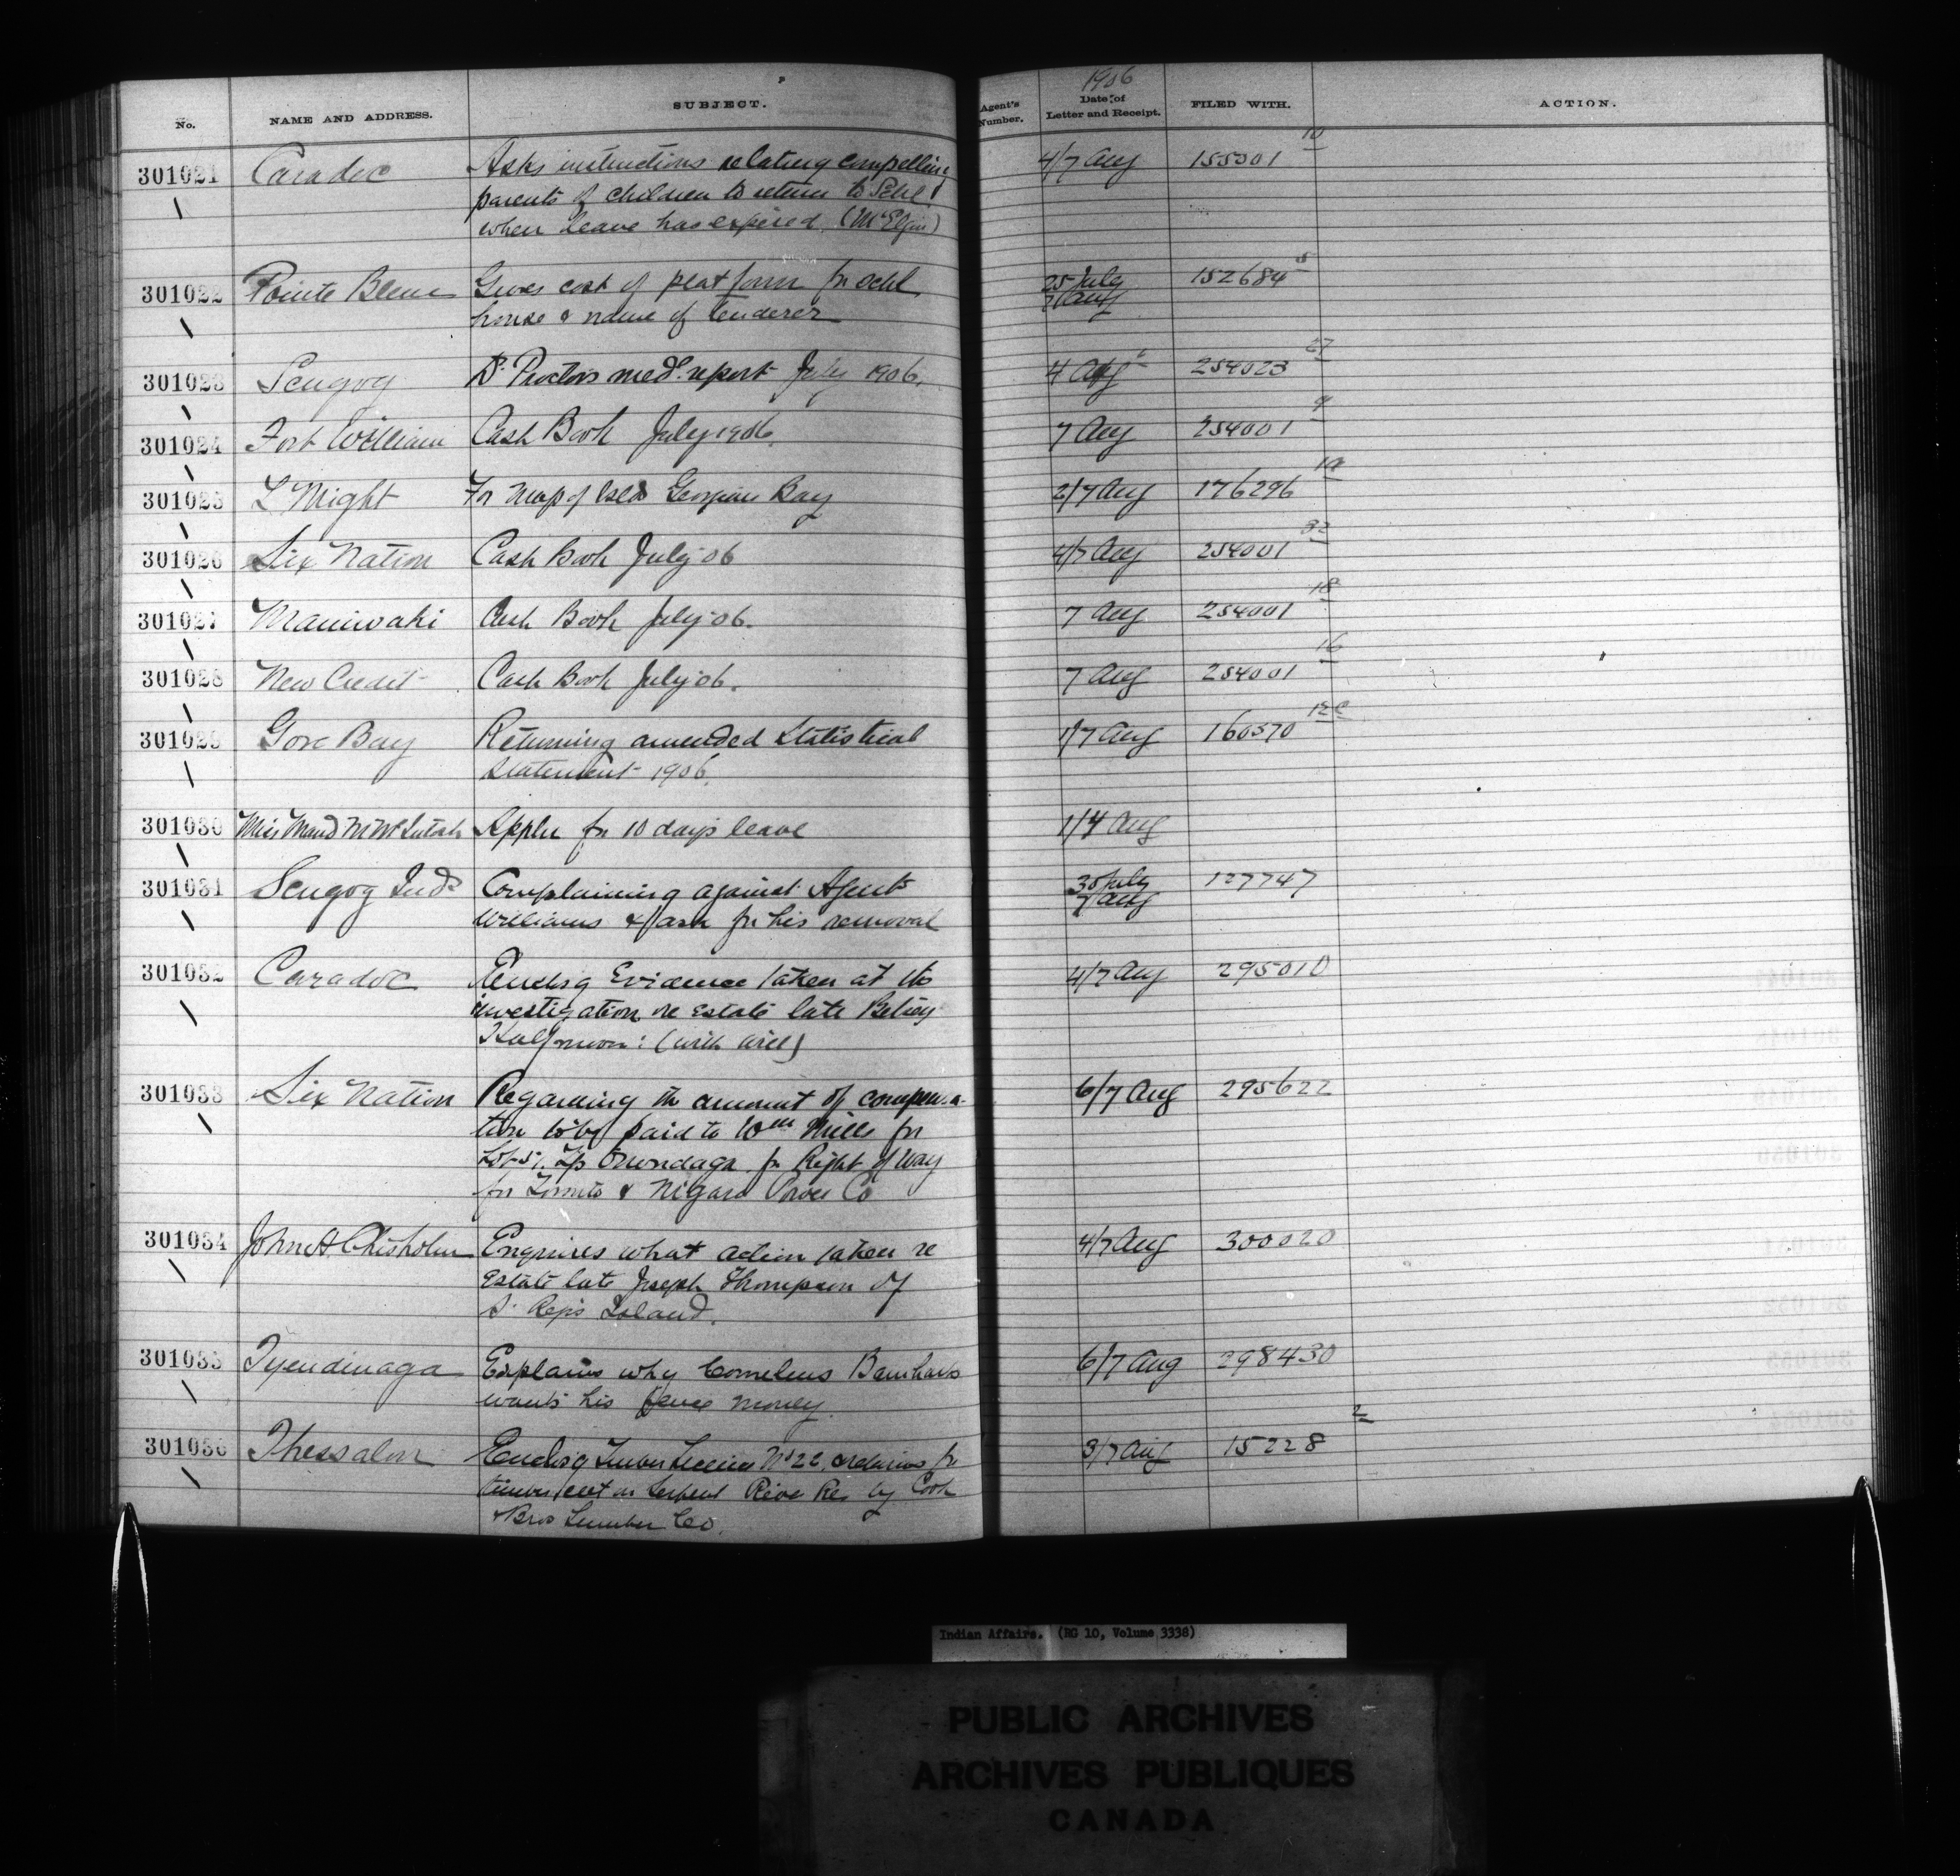 No. NAME AND ADDRESS. SUBJECT. Agent's Number. 1906 Date of Letter and Receipt. FILED WITH. ACTION.
301021 Caradoc Asks instructions relating compelling 4/7 Aug 155301 10
parents of children to return to Schl
when leave has expired. (McElgin)
301022 Pointe Bleue Gives cost of platform for schl 25 July 152684 5
house & name of tenderer 7 Aug
301023 Scugog Dr. Proctors med. report July 1906. 4 Aug 254023 27
301024 Fort William Cash Book July 1906. 7 Aug 254001 9
301025 L Might For Map of Islds Georgian Bay 2/7 Aug 176296
301026 Six Nation Cash Book July 06 4/7 Aug 254001 32
301027 Maniwaki Cash Book July 06. 7 Aug 254001 18
301028 New Credit Cash Book July 06. 7 Aug 254001 16
301029 Gore Bay Returning amended Statistical 1/7 Aug 160370
statement 1906.
301030 Miss Maud M McIntosh Appln for 10 days leave 1/4 Aug
301031 Scugog Inds Complaining against Agent 30 July 127747
Williams & ask for his removal 7 Aug
301032 Caradoc Enclosg Evidence taken at the 4/7 Aug 295010
investigation re Estate late Betsey
Halfmoon: (with will)
301033 Six Nation Regarding the amount of compensa- 6/7 Aug 295622
tion to be paid to Wm Mills for
Lot 57. Tp Onondaga for Right of Way
for Toronto & Nigara Power Co
301034 John A Chisholm Enquires what action taken re 4/7 Aug 300020
Estate late Joseph Thompson of
St. Regis Island.
301035 Tyendinaga Explains why Cornelius Barnhart 6/7 Aug 298430
wants his fence money.
301036 Thessalon Enclosg Timber License No 22, 3/7 Aug 15228 2
timber cut on Serpent River Res by Cook
& Bros Lumber Co.
Indian Affairs. (RG 10, Volume 3338)
PUBLIC ARCHIVES
ARCHIVES PUBLIQUES
CANADA